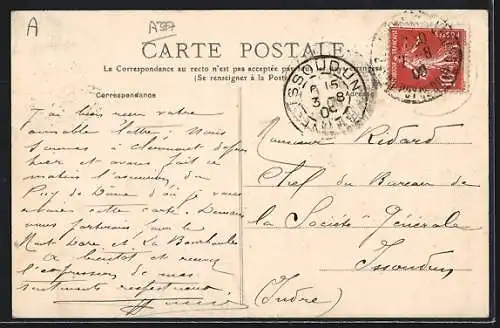 A
A 97
CARTE POSTALE
La Correspondance au recto n'est pas acceptée par
(Se renseigner à la Poste)
Correspondance
ISSOUDUN
6 15
3 - 8
INDRE
J'ai bien reçu votre
aimable lettre. Nous
sommes à Clermont depuis
hier et avons fait ce
matin l'ascension du
Puy de Dôme d'où je vous
envoie cette carte. Demain
nous partirons pour le
Mont Dore et La Bourboule
A bientôt et recevez
l'expression de mes
sentiments respectueux
Monsieur Ridard
Chef du Bureau de
la Société Générale
Issoudun
(Indre)